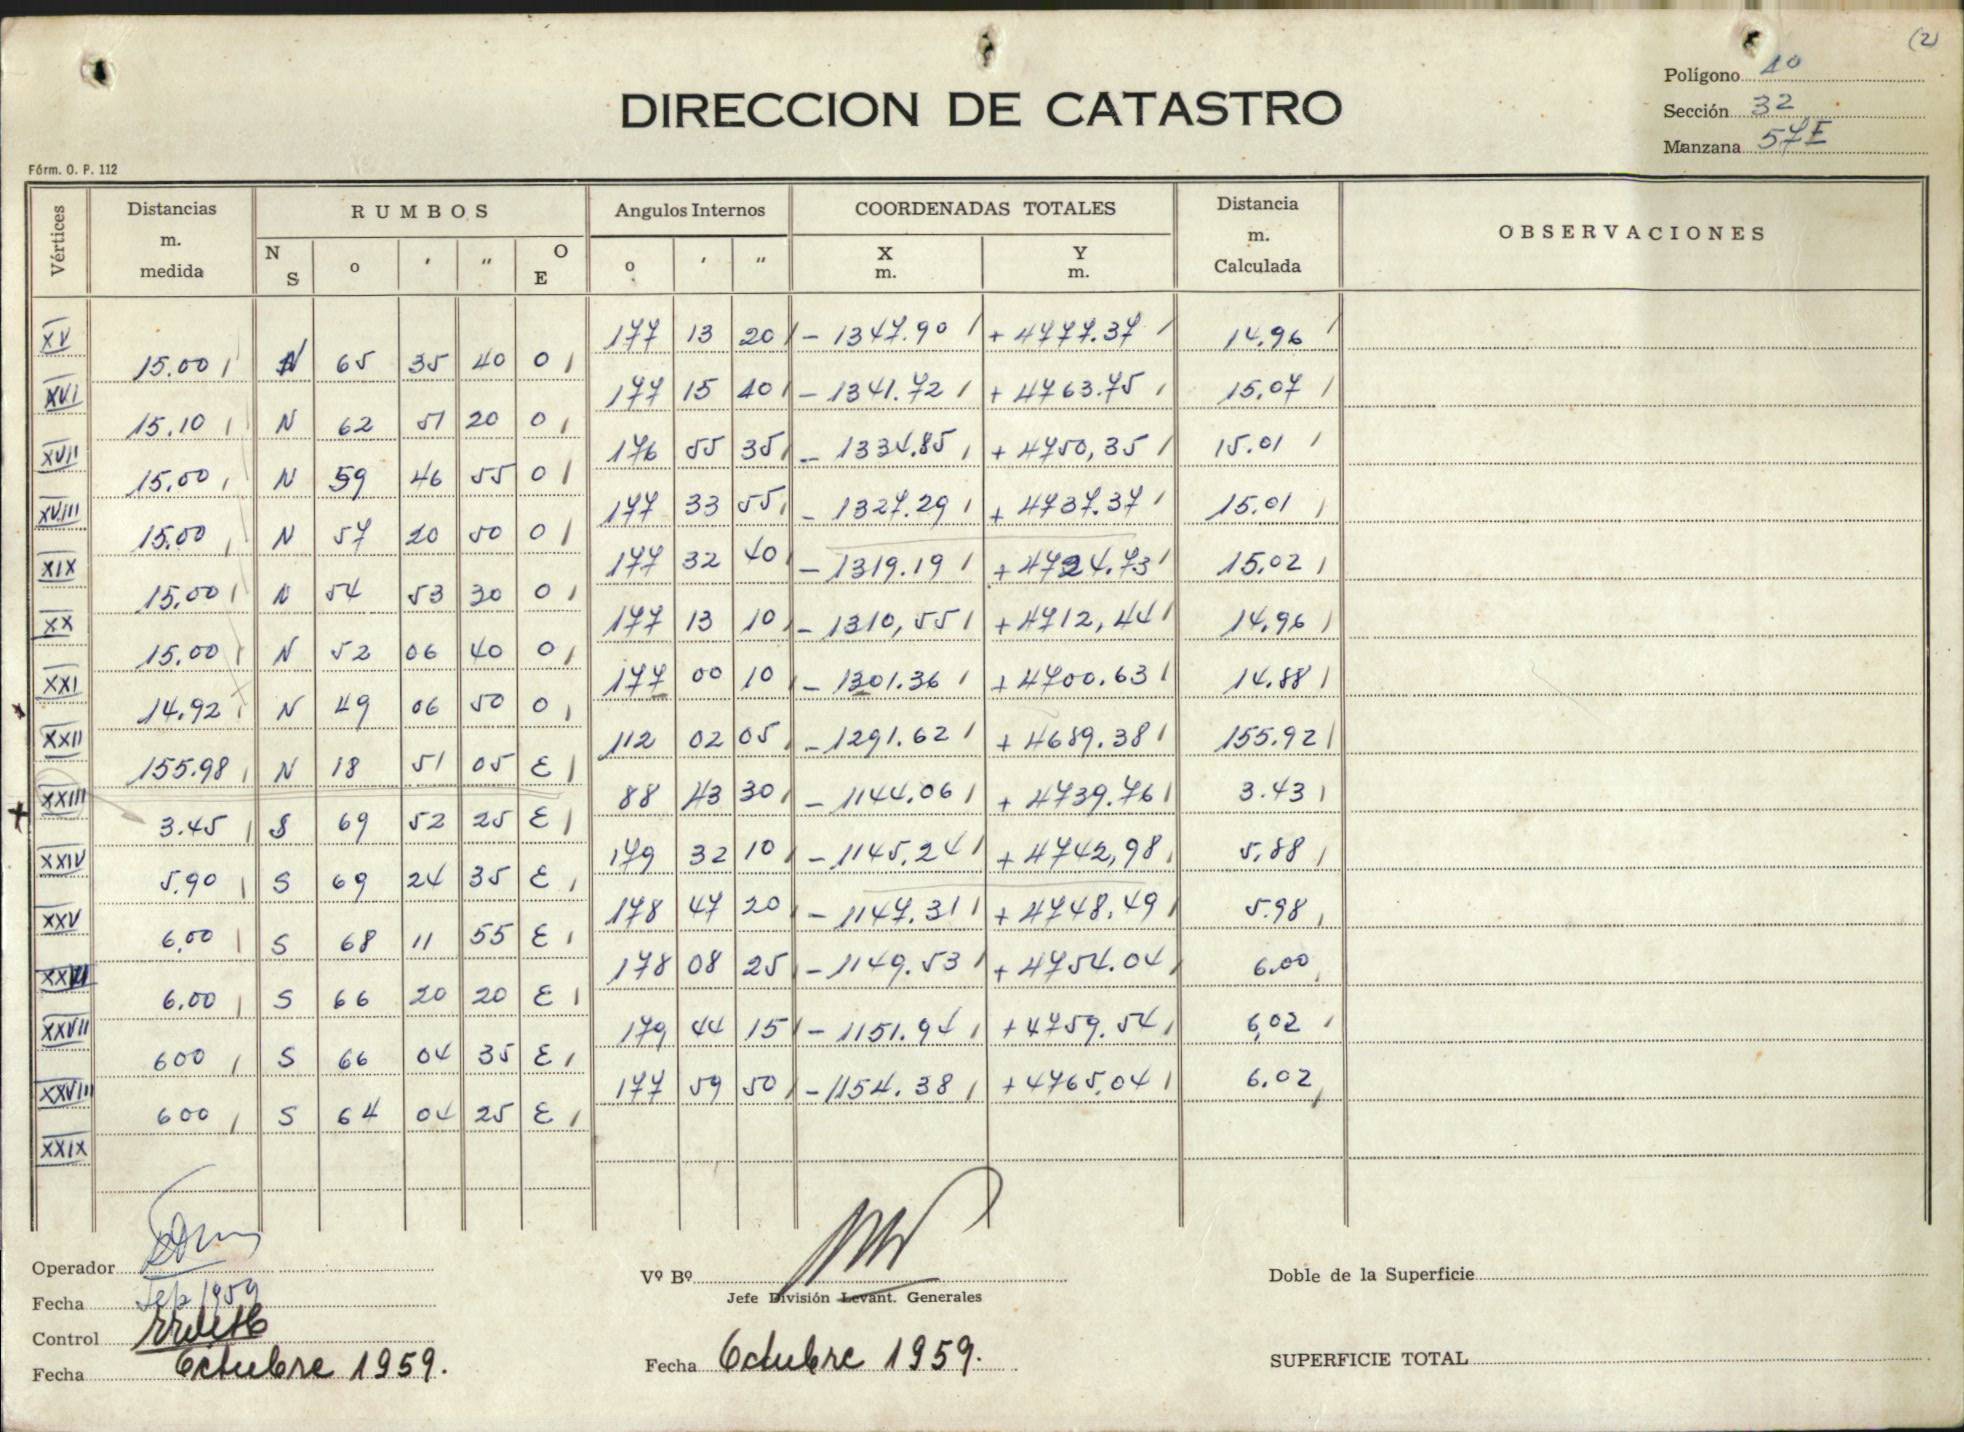 (2)
Polígono 10
DIRECCION DE CATASTRO
Sección 32
Manzana 57E
Fórm. O. P. 112
Vértices
Distancias m. medida
RUMBOS
N S
o ' "
O E
Angulos Internos
o ' "
COORDENADAS TOTALES
X m.
Y m.
Distancia m. Calculada
OBSERVACIONES
XV 177 13 20 - 1347.90 + 4777.37 14.96
15.00 N 65 35 40 O
XVI 177 15 40 - 1341.72 + 4763.75 15.07
15.10 N 62 51 20 O
XVII 176 55 35 - 1334.85 + 4750,35 15.01
15.00 N 59 46 55 O
XVIII 177 33 55 - 1327.29 + 4737.37 15.01
15.00 N 57 20 50 O
XIX 177 32 40 - 1319.19 + 4724.73 15.02
15,00 N 54 53 30 O
XX 177 13 10 - 1310,55 + 4712,44 14.96
15.00 N 52 06 40 O
XXI 177 00 10 - 1301.36 + 4700.63 14.88
14.92 N 49 06 50 O
XXII 112 02 05 - 1291.62 + 4689.38 155.92
155.98 N 18 51 05 E
XXIII 88 43 30 - 1144.06 + 4739.76 3.43
3.45 S 69 52 25 E
XXIV 179 32 10 - 1145.24 + 4742,98 5.88
5.90 S 69 24 35 E
XXV 178 47 20 - 1147.31 + 4748.49 5.98
6,00 S 68 11 55 E
XXVI 178 08 25 - 1149.53 + 4754.04 6.00
6,00 S 66 20 20 E
XXVII 179 44 15 - 1151.94 + 4759.54 6,02
600 S 66 04 35 E
XXVIII 177 59 50 - 1154.38 + 4765,04 6.02
600 S 64 04 25 E
XXIX
Operador
Fecha Sep 1959
Control
Fecha Octubre 1959.
Vº Bº
Jefe División Levant. Generales
Fecha Octubre 1959.
Doble de la Superficie
SUPERFICIE TOTAL